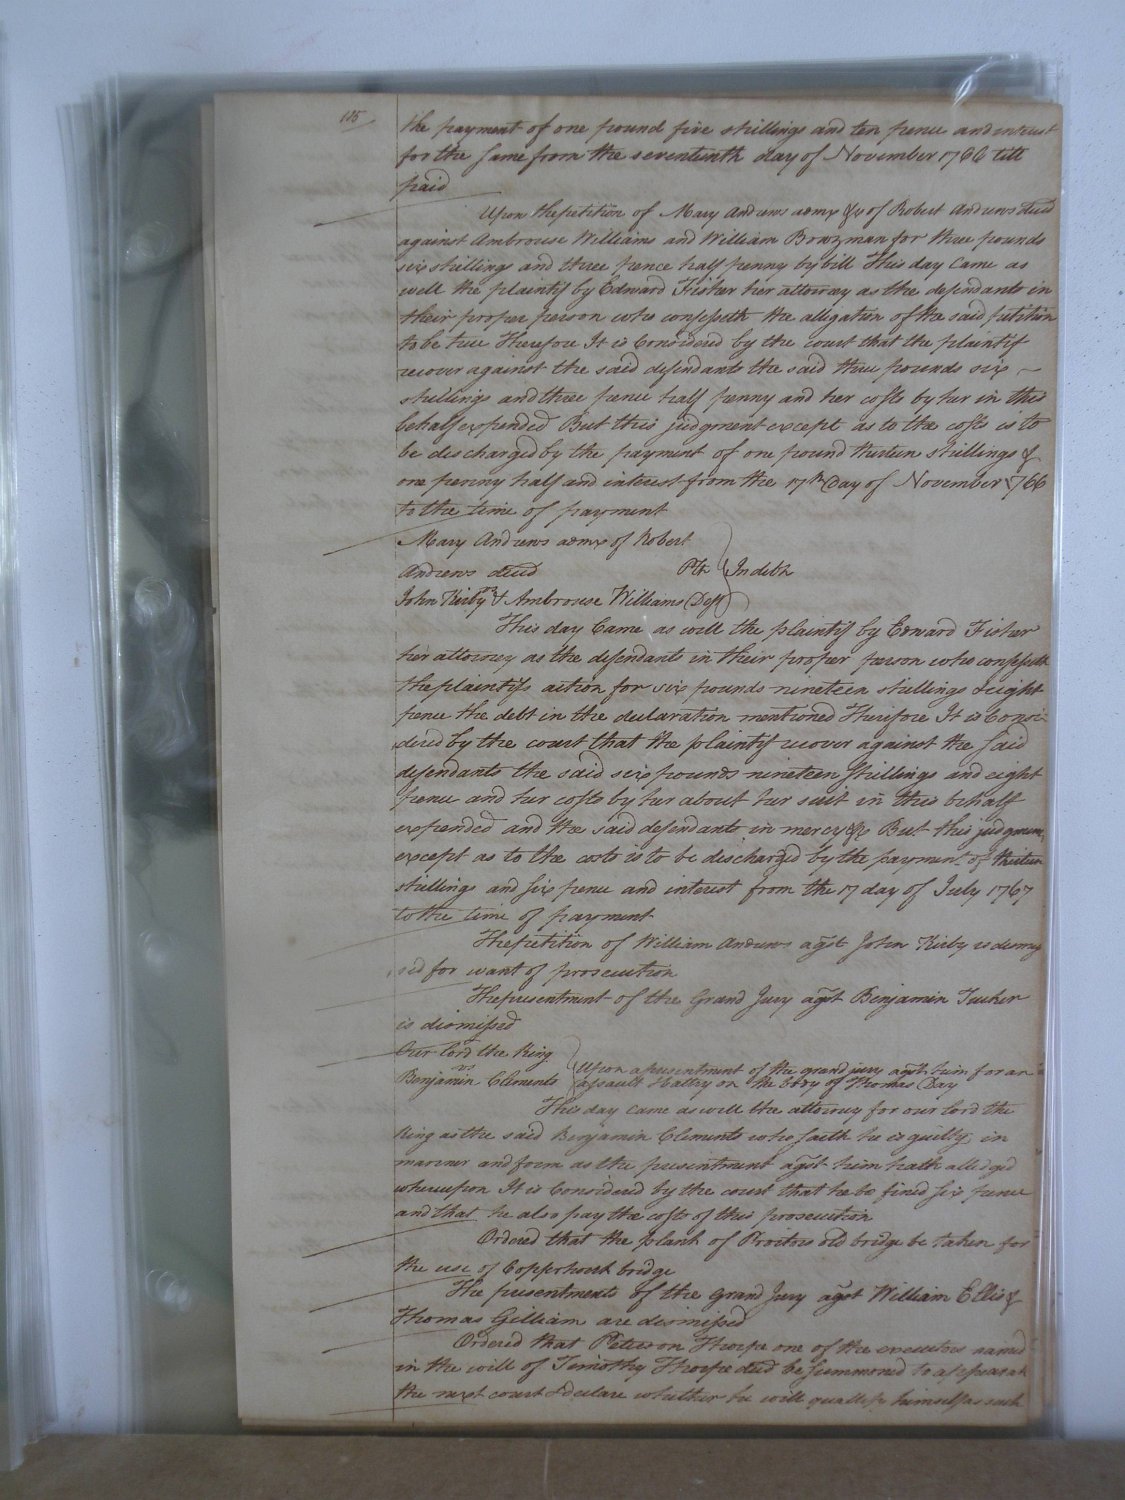 115
the payment of one pound five shillings and ten pence and interest
for the same from the seventeenth day of November 1766 till
paid
Upon the petition of Mary Andrews admx &c of Robert Andrews decd
against Ambrouse Williams and William Brozman for three pounds
six shillings and three pence half penny by bill This day Came as
well the plaintif by Edward Fisher her attorney as the defendants in
their proper person who confesseth the allegation of the said petition
to be true Therefore It is Considered by the court that the plaintif
recover against the said defendants the said three pounds six
shillings and three pence half penny and her costs by her in this
behalf expended But this judgment except as to the costs is to
be discharged by the payment of one pound thirteen shillings &
one penny half and interest from the 17th Day of November 1766
to the time of payment
Mary Andrews admx of Robert
Andrews decd Plt } In debt
John Kirby & Ambrouse Williams Deft
This day Came as well the plaintif by Edward Fisher
her attorney as the defendants in their proper person who confesseth
the plaintifs action for six pounds nineteen shillings & eight
pence the debt in the declaration mentioned Therefore It is Consi-
dered by the court that the plaintif recover against the said
defendants the said six pounds nineteen shillings and eight
pence and her costs by her about her suit in this behalf
expended and the said defendants in mercy &c But this judgment
except as to the costs is to be discharged by the payment of thirteen
shillings and six pence and interest from the 17 day of July 1767
to the time of payment
The petition of William Andrews agst John Kirby is dismis
sed for want of prosecution
The presentment of the Grand Jury agst Benjamin Tucker
is dismissed
Our lord the King
vs
Benjamin Clements } Upon a presentment of the grand jury agst him for an
assault & battry on the Body of Thomas Day
This day came as well the attorney for our lord the
King as the said Benjamin Clements who saith he is guilty in
manner and form as the presentment agst him hath alledged
whereupon It is Considered by the court that he be fined six pence
and that he also pay the costs of this prosecution
Ordered that the plank of Proctors old bridge be taken for
the use of Coppohonk bridge
The presentments of the Grand Jury agst William Ellis &
Thomas Gilliam are dismissed
Ordered that Peterson Thorpe one of the executors named
in the will of Timothy Thorpe decd be summoned to appear at
the next court & declare whether he will quallify himself as such